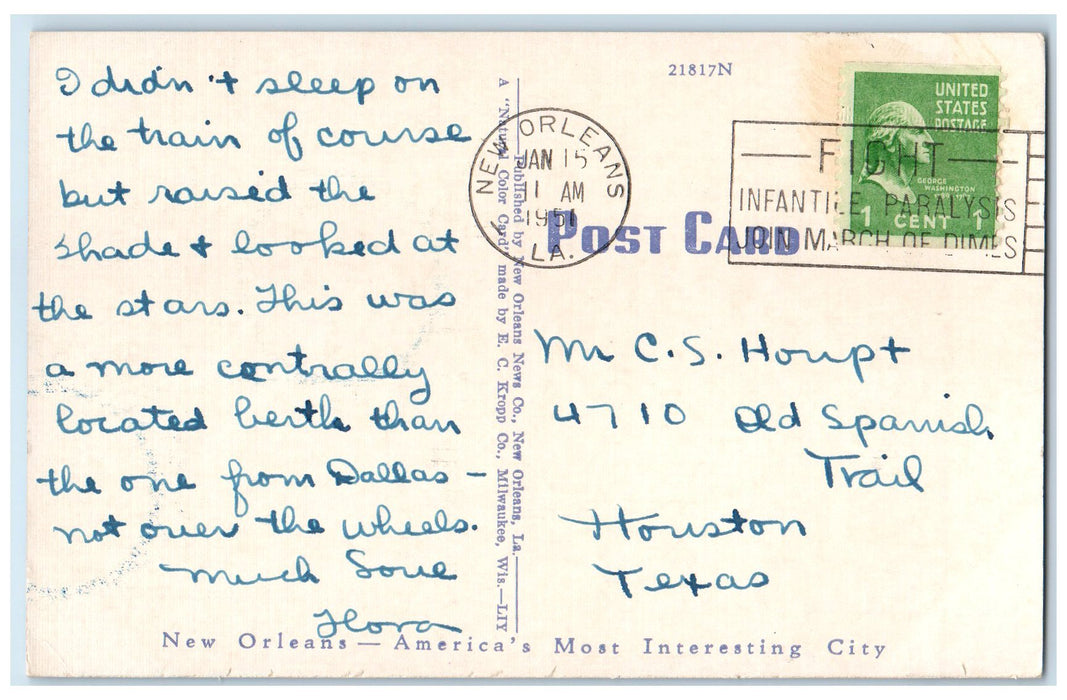 I didn't sleep on
the train of course
but raised the
shade & looked at
the stars. This was
a more contrally
located berth than
the one from Dallas –
not over the wheels.
Much Love
Flora
A "Natural Color Card" made by E. C. Kropp Co., Milwaukee, Wis.—LIY
Published by New Orleans News Co., New Orleans, La.
21817N
NEW ORLEANS
JAN 15
1 AM
1951
LA.
FIGHT
INFANTILE PARALYSIS
JOIN MARCH OF DIMES
UNITED
STATES
POSTAGE
GEORGE
WASHINGTON
1 CENT 1
POST CARD
Mr C.S. Houpt
4710 Old Spanish
Trail
Houston
Texas
New Orleans — America's Most Interesting City